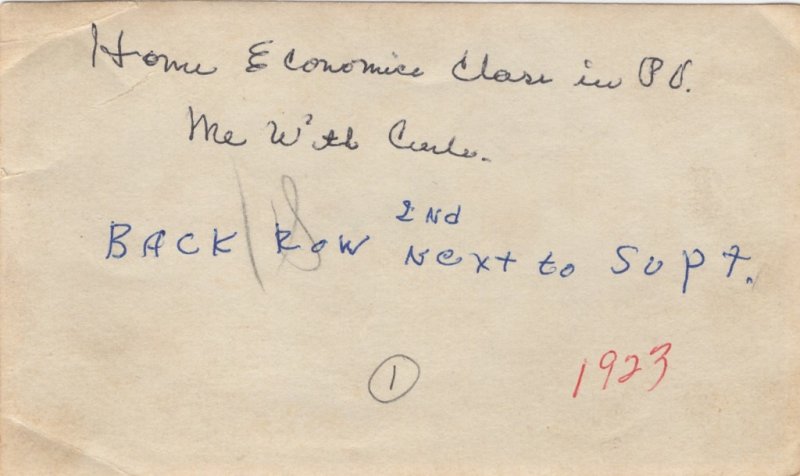 Home Economics Class in P.O.
Me With Curls.
BACK ROW 2Nd Next to Supt.
1
1923